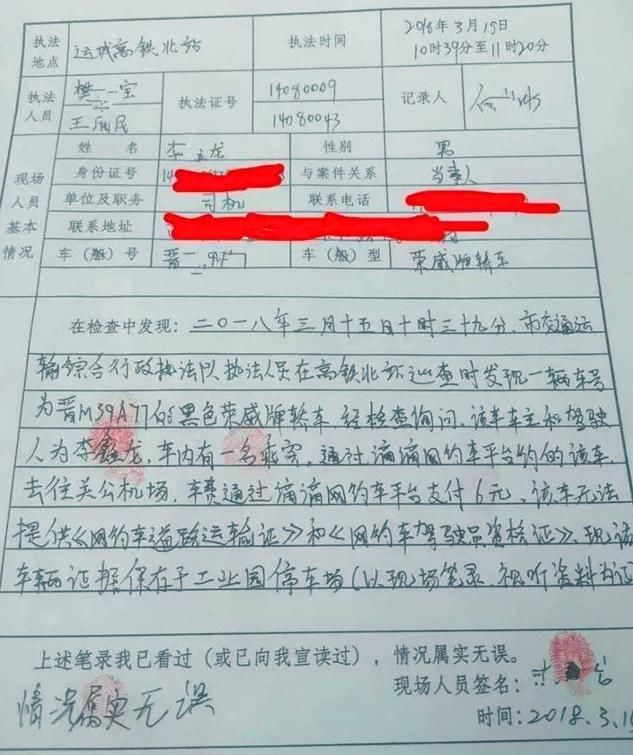 执法地点 运城高铁北站 执法时间 2018年3月15日
10时39分至11时20分
执法人员 樊一宝 执法证号 14080009 记录人
王 民 14080043
现场人员基本情况 姓名 李 龙 性别 男
身份证号 14 与案件关系 当事人
单位及职务 司机 联系电话
联系地址
车(船)号 晋 车(船)型 荣威牌轿车
在检查中发现：二〇一八年三月十五日十时三十九分、市交通运
输综合行政执法队执法人员在高铁北站巡查时发现一辆车号
为晋M39A77的黑色荣威牌轿车、经检查询问、该车车主和驾驶
人为李鑫龙、车内有一名乘客、通过滴滴网约车平台约的该车
去往关公机场、车费通过滴滴网约车平台支付6元、该车无法
提供《网约车道路运输证》和《网约车驾驶员资格证》、现该
车辆证据保存于工业园停车场(以现场笔录、视听资料为证
上述笔录我已看过（或已向我宣读过），情况属实无误。
情况属实无误 现场人员签名：
时间：2018.3.1